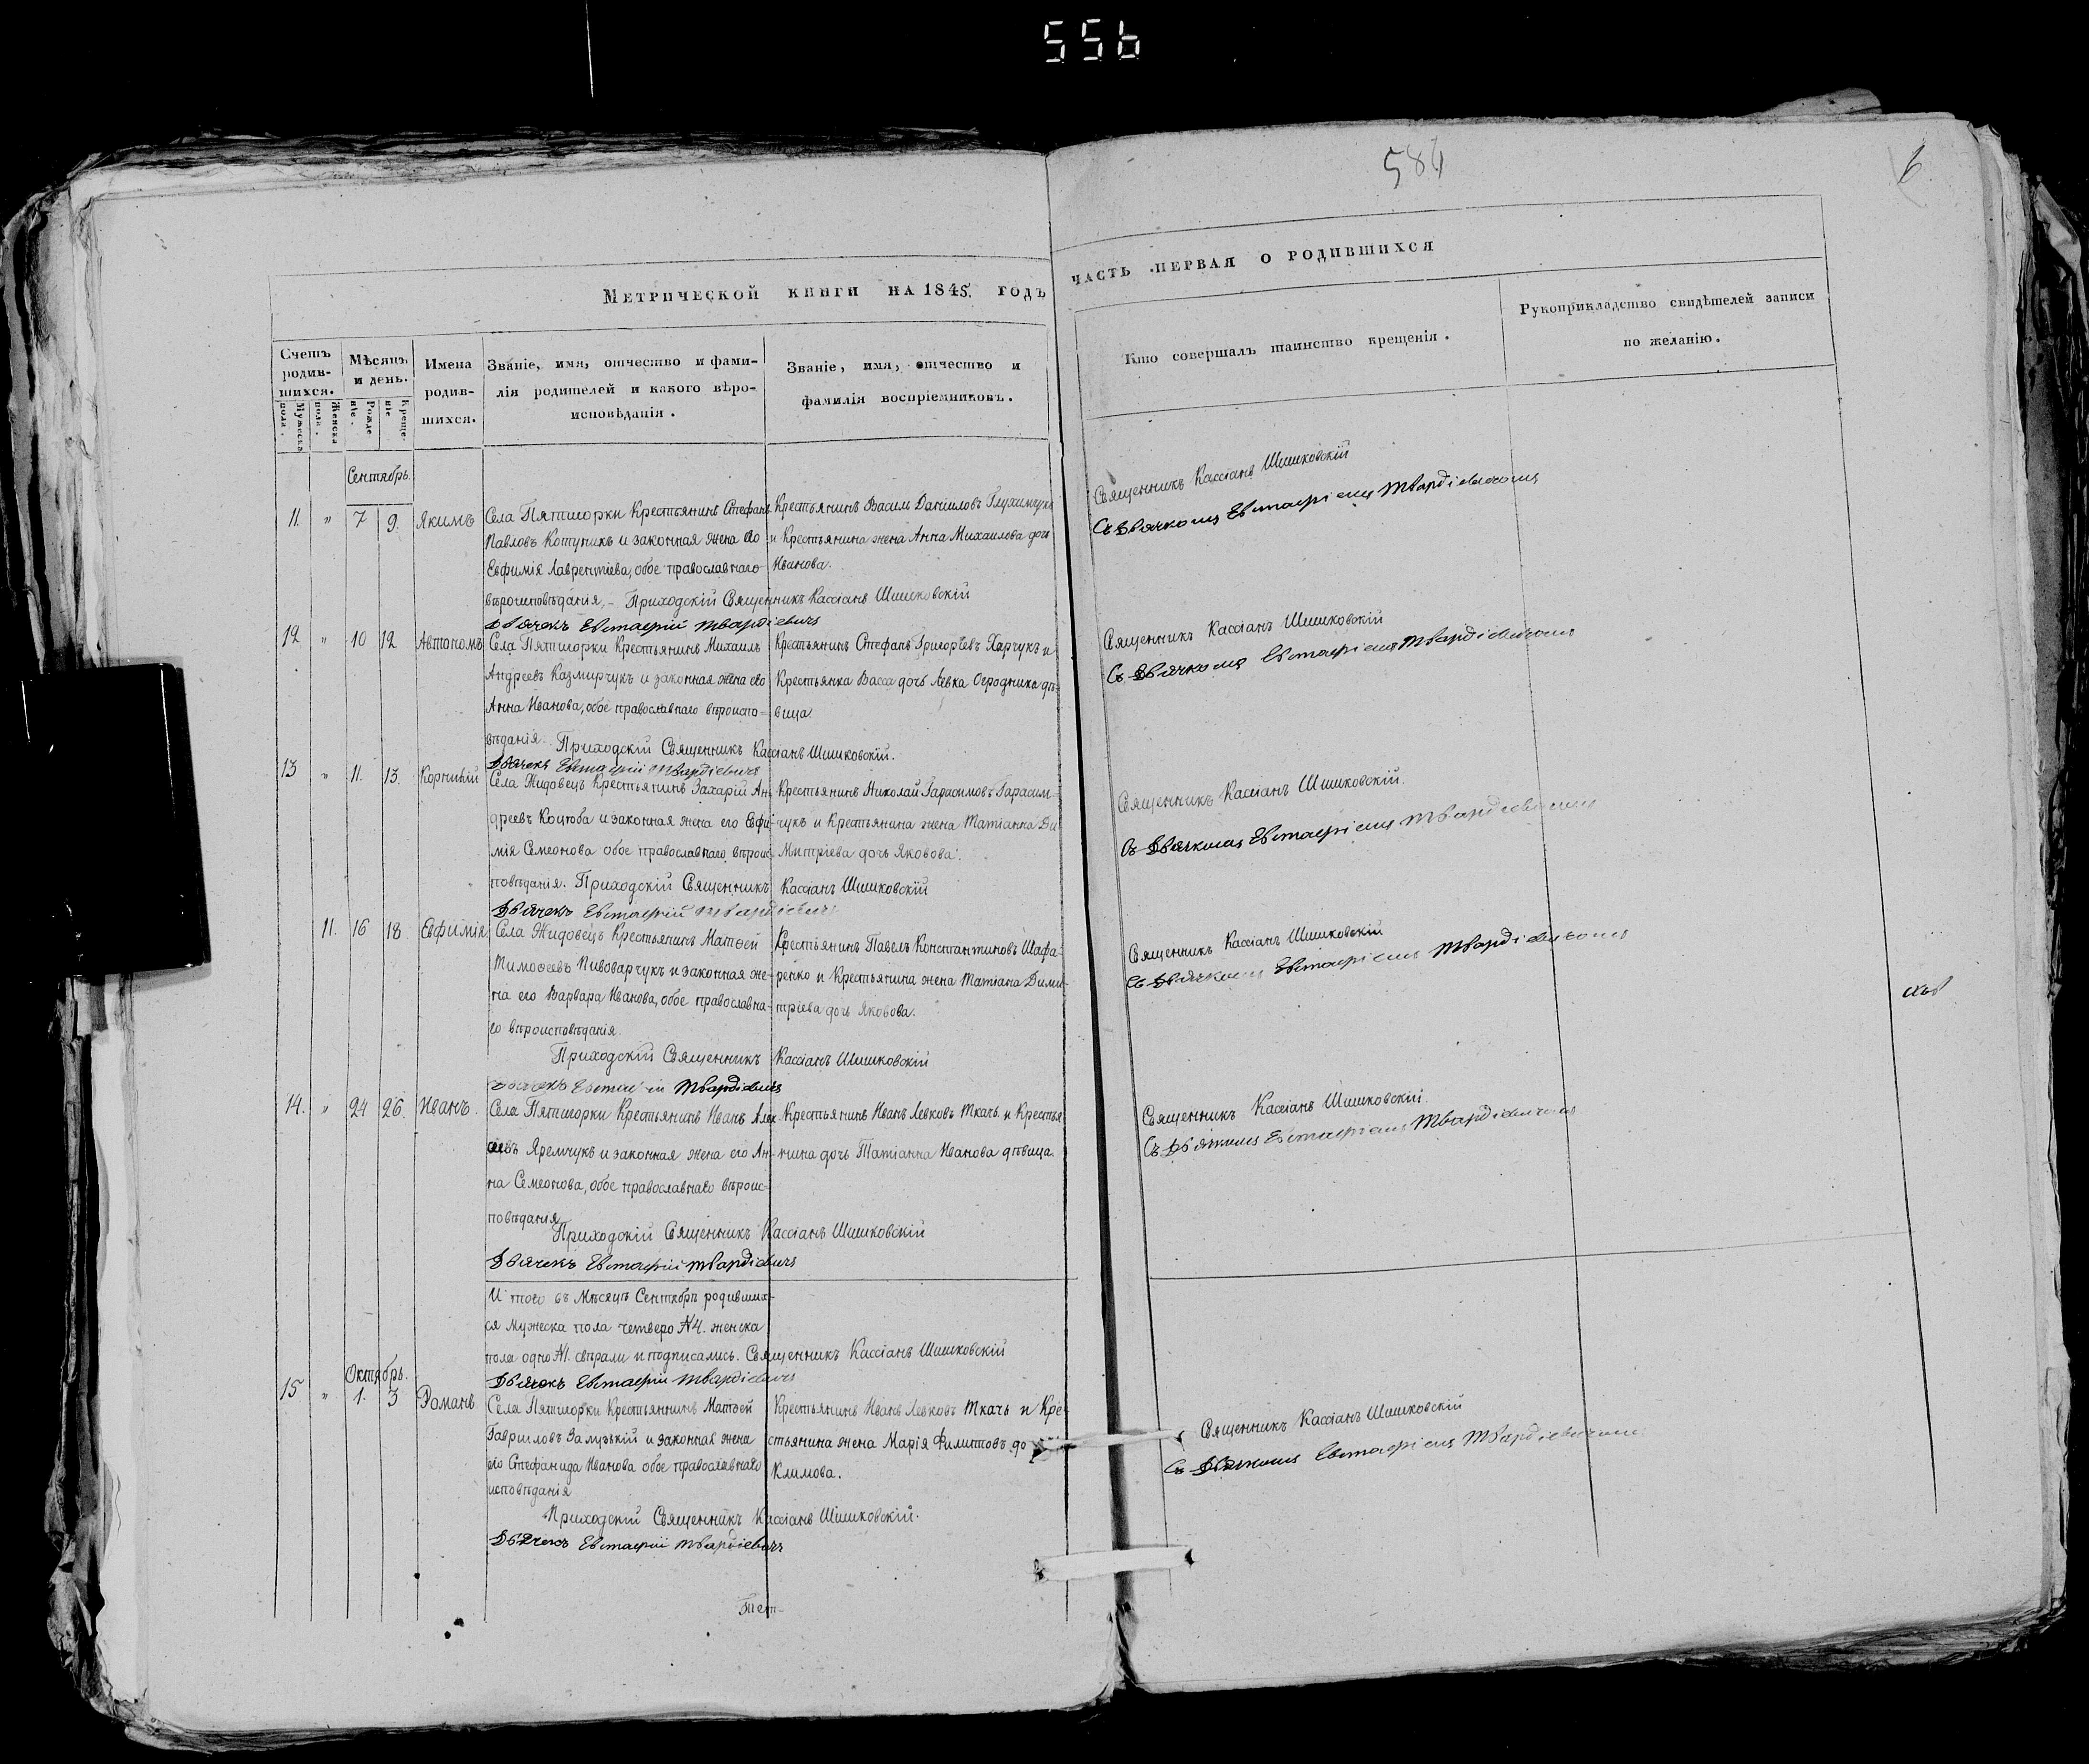 556
584
6
Метрической книги на 1845. годъ
часть первая о родившихся
Счетъ родив-шихся.
Мужеска пола.
Женска пола.
Мѣсяцъ и день.
Рожде ніе.
Креще-ніе
Имена родив-шихся.
Званіе, имя, отчество и фами-
лія родителей и какого вѣро-
исповѣданія.
Званіе, имя, отчество и
фамилія воспріемниковъ.
Кто совершалъ таинство крещенія.
Рукоприкладство свидѣтелей записи
по желанію.
Сентябрь
11. " 7 9. Якимъ
Села Пятигорки Крестьянинъ Стефанъ
Павловъ Котуникъ и законная жена его
Евфимія Лаврентіева, обое православнаго
вѣроисповѣданія, – Приходскій Священникъ Кассіанъ Шишковскій
Дьячекъ Евстафій Твардіевичъ
Крестьянинъ Васил Даніиловъ Глухимчукъ
и Крестьянина жена Анна Михаилова дочь
Иванова.
Священникъ Кассіанъ Шишковскій
Съ Дьячкомъ Евстафіемъ Твардіевичомъ
12 " 10 12 Автономъ
Села Пятигорки Крестьянинъ Михаилъ
Андреевъ Казмирчукъ и законная жена его
Анна Иванова, обое православнаго вѣроиспо-
вѣданія. Приходскій Священникъ Кассіанъ Шишковскій.
Дьячекъ Евстафій Твардіевичъ
Крестьянинъ Стефанъ Григоріевъ Харчукъ и
Крестьянка Васса дочь Левка Огродника дѣ-
вица.
Священникъ Кассіанъ Шишковскій
Съ Дьячкомъ Евстафіемъ Твардіевичомъ
13 " 11. 13. Корнилій
Села Жидовецъ Крестьянинъ Захарій Ан-
дреевъ Коцюба и законная жена его Евфи-
мія Семеонова обое православнаго вѣроис-
повѣданія. Приходскій Священникъ Кассіанъ Шишковскій
Дьячекъ Евстафій Твардіевичъ
Крестьянинъ Николай Гарасимовъ Гарасим-
чукъ и Крестьянина жена Татіанна Ди-
митріева дочь Яковова.
Священникъ Кассіанъ Шишковскій.
Съ Дьячкомъ Евстафіемъ Твардіевичомъ
11. 16 18 Евфимія
Села Жидовецъ Крестьянинъ Матѳей
Тимоѳеевъ Пивоварчукъ и законная же-
на его Варвара Иванова, обое православна-
го вѣроисповѣданія.
Приходскій Священникъ Кассіанъ Шишковскій
Дьячекъ Евстафій Твардіевичъ
Крестьянинъ Павелъ Константиновъ Шафа-
ренко и Крестьянина жена Татіана Дими-
тріева дочь Яковова.
Священникъ Кассіанъ Шишковскій
Съ Дьячкомъ Евстафіемъ Твардіевичомъ
14. " 24 26. Иванъ.
Села Пятигорки Крестьянинъ Иванъ Алек-
сѣевъ Яремчукъ и законная жена его Ан-
на Семеонова, обое православнаго вѣроис-
повѣданія
Приходскій Священникъ Кассіанъ Шишковскій
Дьячекъ Евстафій Твардіевичъ
Крестьянинъ Иванъ Левковъ Ткачъ. и Крестья-
нина дочь Татіанна Иванова дѣвица.
Священникъ Кассіанъ Шишковскій.
Съ Дьячкомъ Евстафіемъ Твардіевичомъ
И того въ Мѣсяцѣ Сентябрѣ родивших-
ся мужеска пола четверо №4. женска
пола одно №1. свѣрали и подписались. Священникъ Кассіанъ Шишковскій
Дьячекъ Евстафій Твардіевичъ
Октябрь.
15 " 1. 3 Романъ
Села Пятигорки Крестьянинъ Матѳей
Гавриловъ Залузькій и законная жена
его Стефанида Иванова обое православнаго
исповѣданія
Приходскій Священникъ Кассіанъ Шишковскій.
Дьячекъ Евстафій Твардіевичъ
Крестьянинъ Иванъ Левковъ Ткачъ и Кре-
стьянина жена Марія Филиппов. до
Климова.
Священникъ Кассіанъ Шишковскій
Съ Дьячкомъ Евстафіемъ Твардіевичомъ